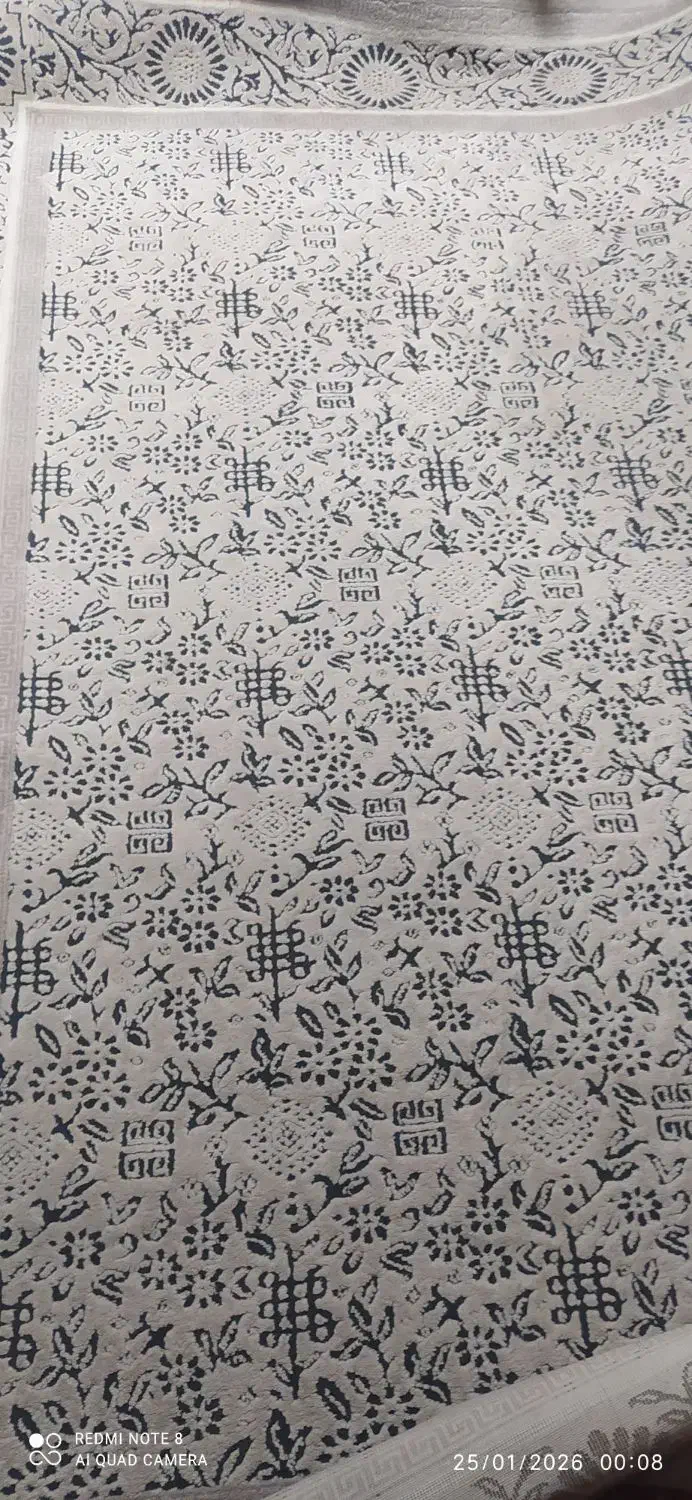 REDMI NOTE 8
AI QUAD CAMERA
25/01/2026 00:08